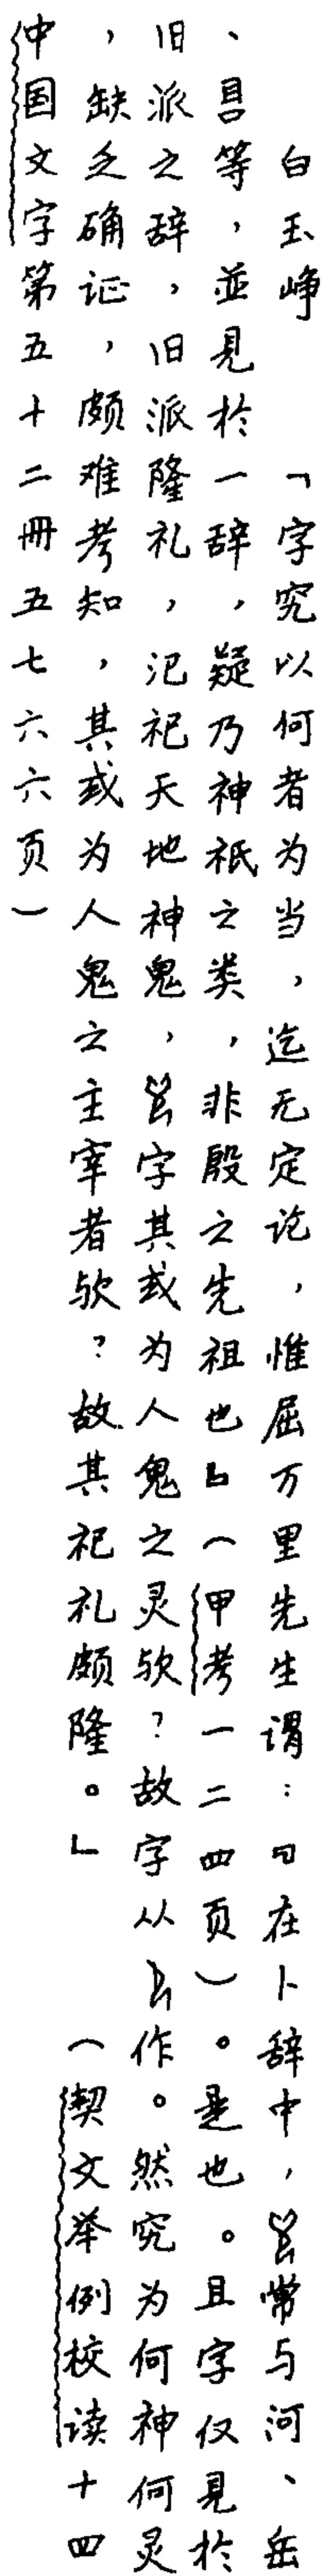 白玉峥　「字究以何者为当，迄无定论，惟屈万里先生谓：『在卜辞中，常与河、岳
、等，並見於一辞，疑乃神祇之类，非殷之先祖也』（甲考一二四页）。是也。且字仅見於
旧派之辞，旧派隆礼，氾祀天地神鬼，字其或为人鬼之灵欤？故字从作。然究为何神何灵
，缺乏确证，颇难考知，其或为人鬼之主宰者欤？故其祀礼颇隆。」　（契文举例校读十四
中国文字第五十二冊五七六六页）